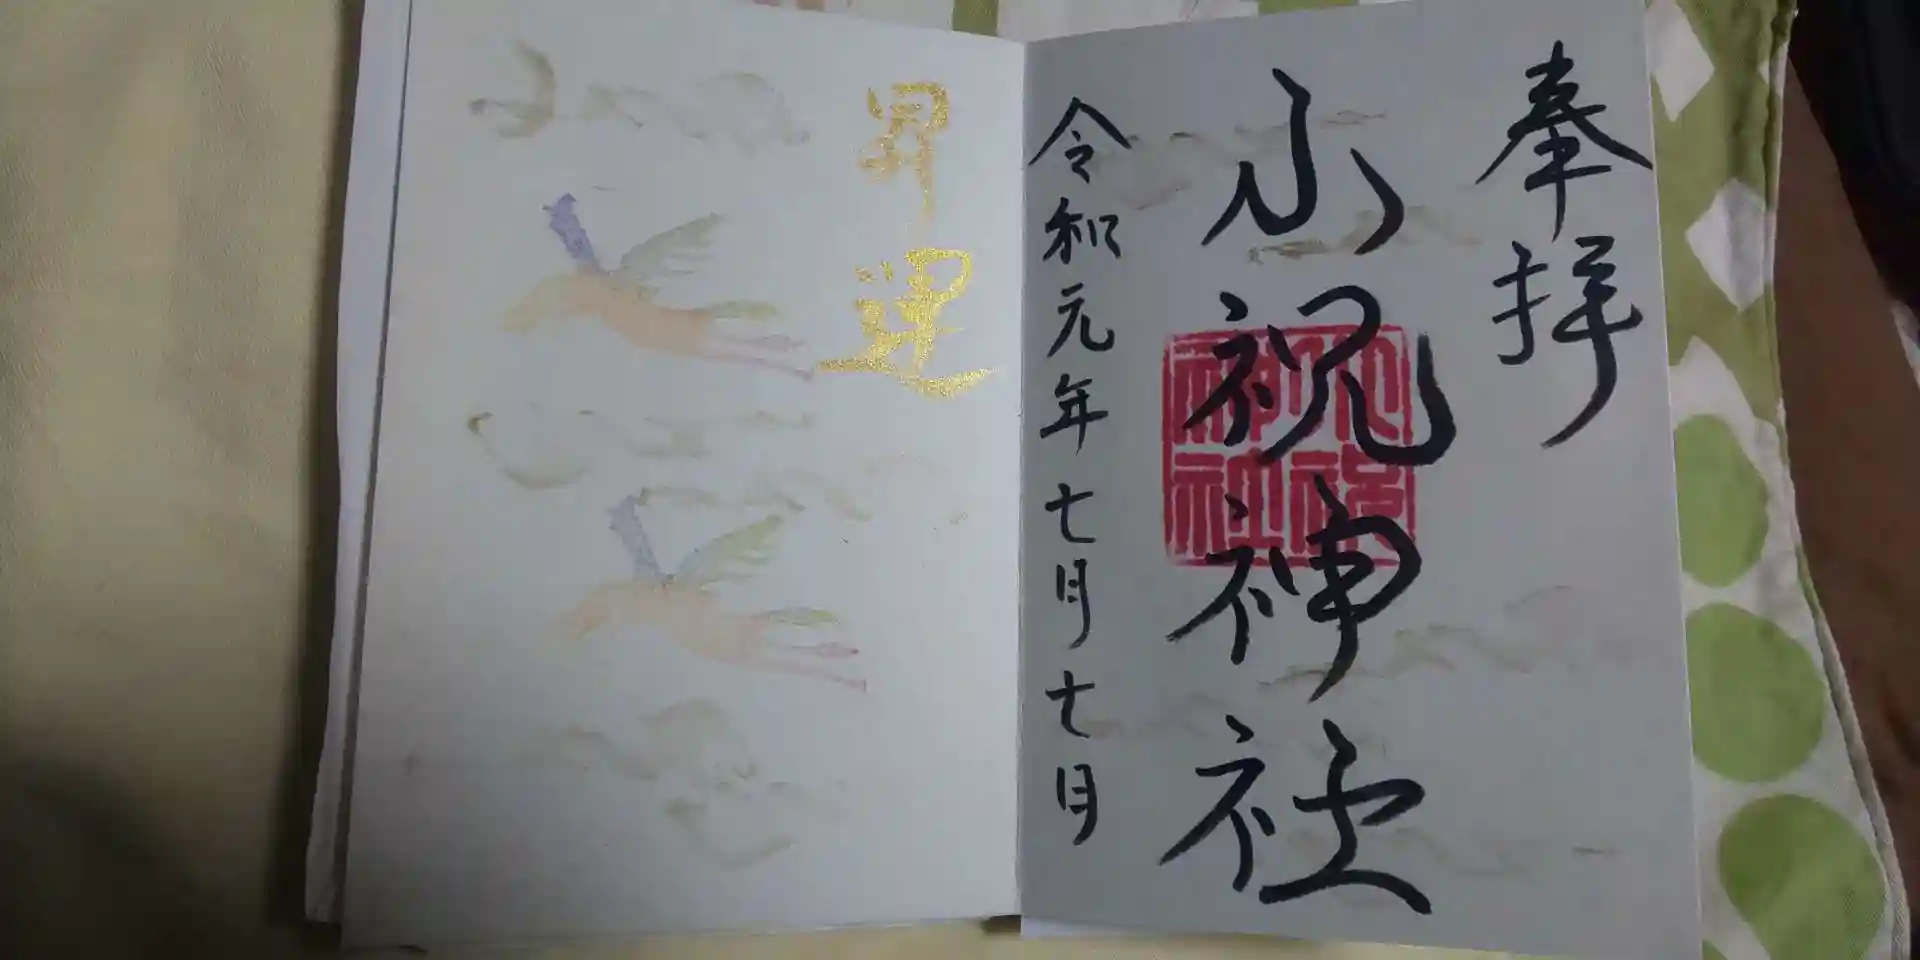 奉拝
小祝神社
小祝
神社
令和元年七月七日
昇運